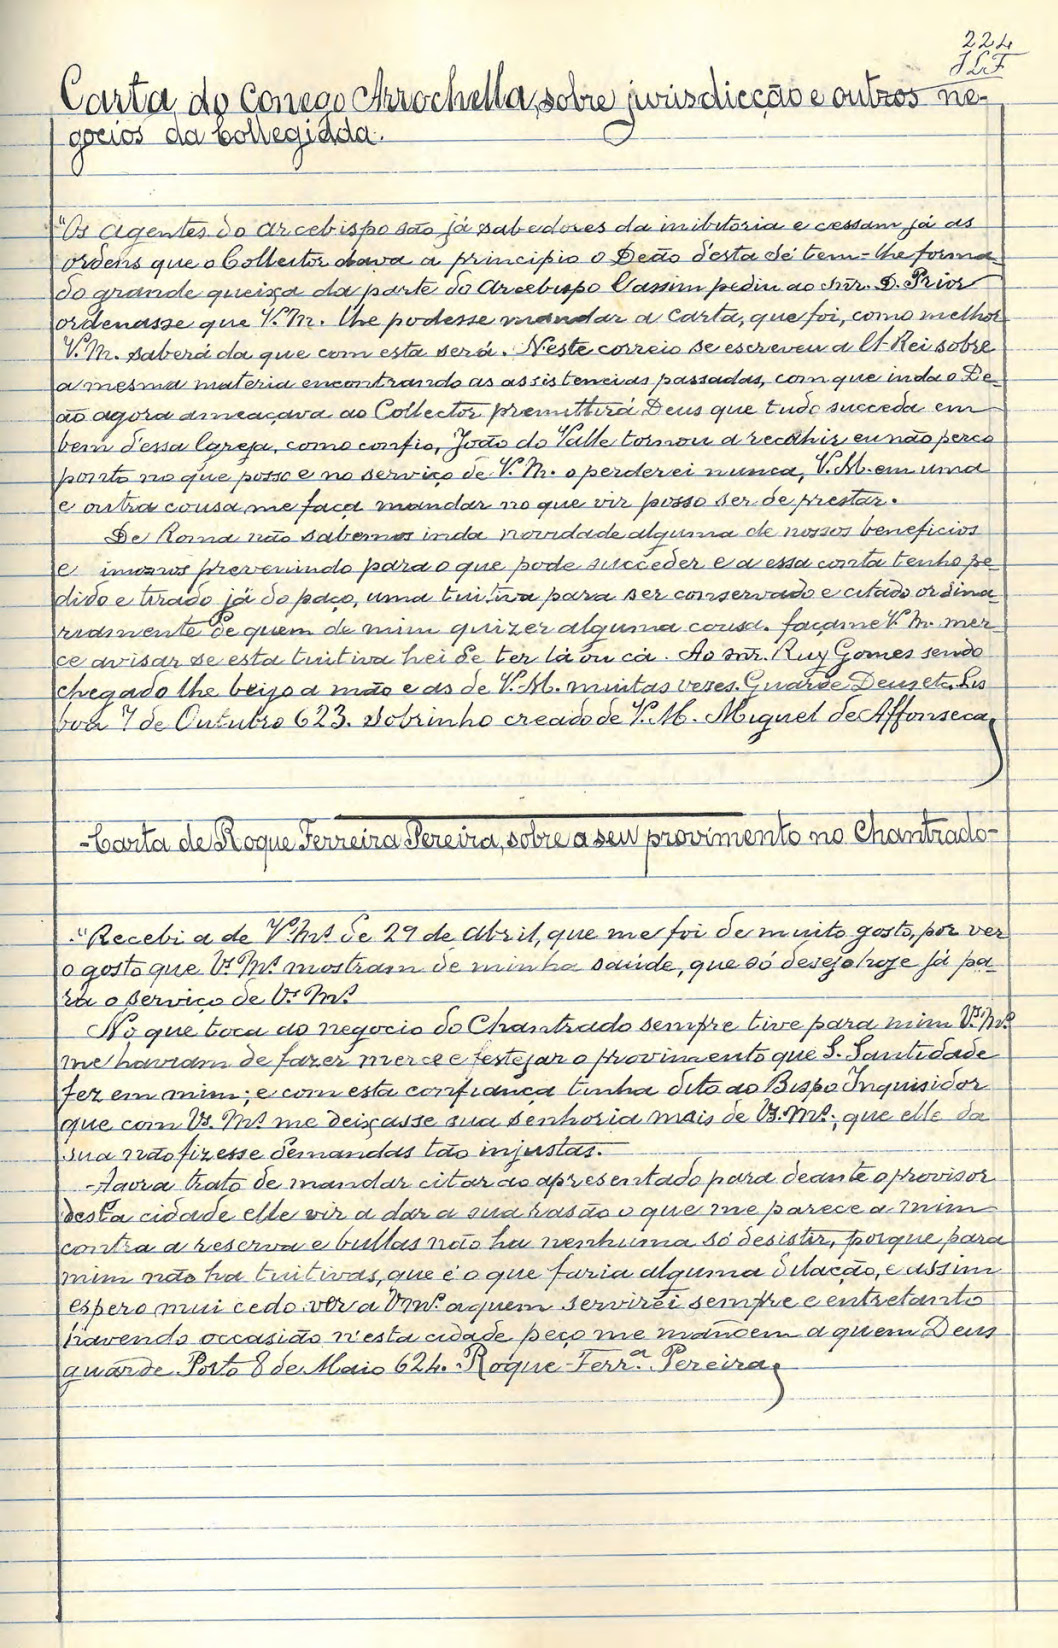 224
JLF
Carta do Conego Arrochella, sobre jurisdicção e outros ne-
gocios da Collegiada.
"Os agentes do arcebispo são já sabedores da inibitoria e cessam já as
ordens que o Collector dava a principio o Deão desta sé tem-lhe forma
do grande queixa da parte do arcebispo e assim pediu ao snr. D. Prior
ordenasse que V. M. lhe podesse mandar a carta, que foi, como melhor
V. M. saberá da que com esta será. Neste correio se escreveu a El-Rei sobre
a mesma materia encontrando as assistencias passadas, com que inda o De-
ão agora ameaçava ao Collector premittirá Deus que tudo succeda em
bem dessa Egreja, como confio, João do Valle tornou a recahir eu não perco
ponto no que posso e no serviço de V. M. o perderei nunca, V. M. em uma
e outra cousa me faça mandar no que vir posso ser de prestar.
De Roma não sabemos inda novidade alguma de nossos beneficios
e imonos prevenindo para o que pode succeder e a essa conta tenho pe-
dido e tirado já do paço, uma tuitiva para ser conservado e citado ordina-
riamente de quem de mim quizer alguma cousa. façame V. M. mer-
ce avisar se esta tuitiva hei de ter lá ou cá. Ao snr. Ruy Gomes sendo
chegado lhe beijo a mão e as de V. M. muitas vezes. Guarde Deus etc. Lis
boa 7 de Outubro 623. Sobrinho creado de V. M. Miguel de Affonseca
-Carta de Roque Ferreira Pereira, sobre a seu provimento no Chantrado-
"Recebi a de V.s M.s de 29 de abril, que me foi de muito gosto, por ver
o gosto que V.s M.s mostram de minha saúde, que só desejo hoje já pa-
ra o serviço de V.s M.s
No que toca ao negocio do Chantrado sempre tive para mim V.s M.s
me haviam de fazer merce e festejar o provimento que S. Santidade
fez em mim; e com esta confiança tinha dito ao Bispo Inquisidor
que com V.s M.s me deixasse sua senhoria mais de V.s M.s; que elle da
sua não fizesse demandas tão injustas.
-Agora trato de mandar citar ao apresentado para deante o provisor
desta cidade elle vir a dar a sua rasão o que me parece a mim
contra a reserva e bullas não ha nenhuma só desistir, porque para
mim não ha tuitivas, que é o que faria alguma dilação, e assim
espero mui cedo ver a V.s M.s a quem servirei sempre e entretanto
havendo occasião n'esta cidade peço me mandem a quem Deus
guarde. Porto 8 de Maio 624. Roque Ferr.a Pereira